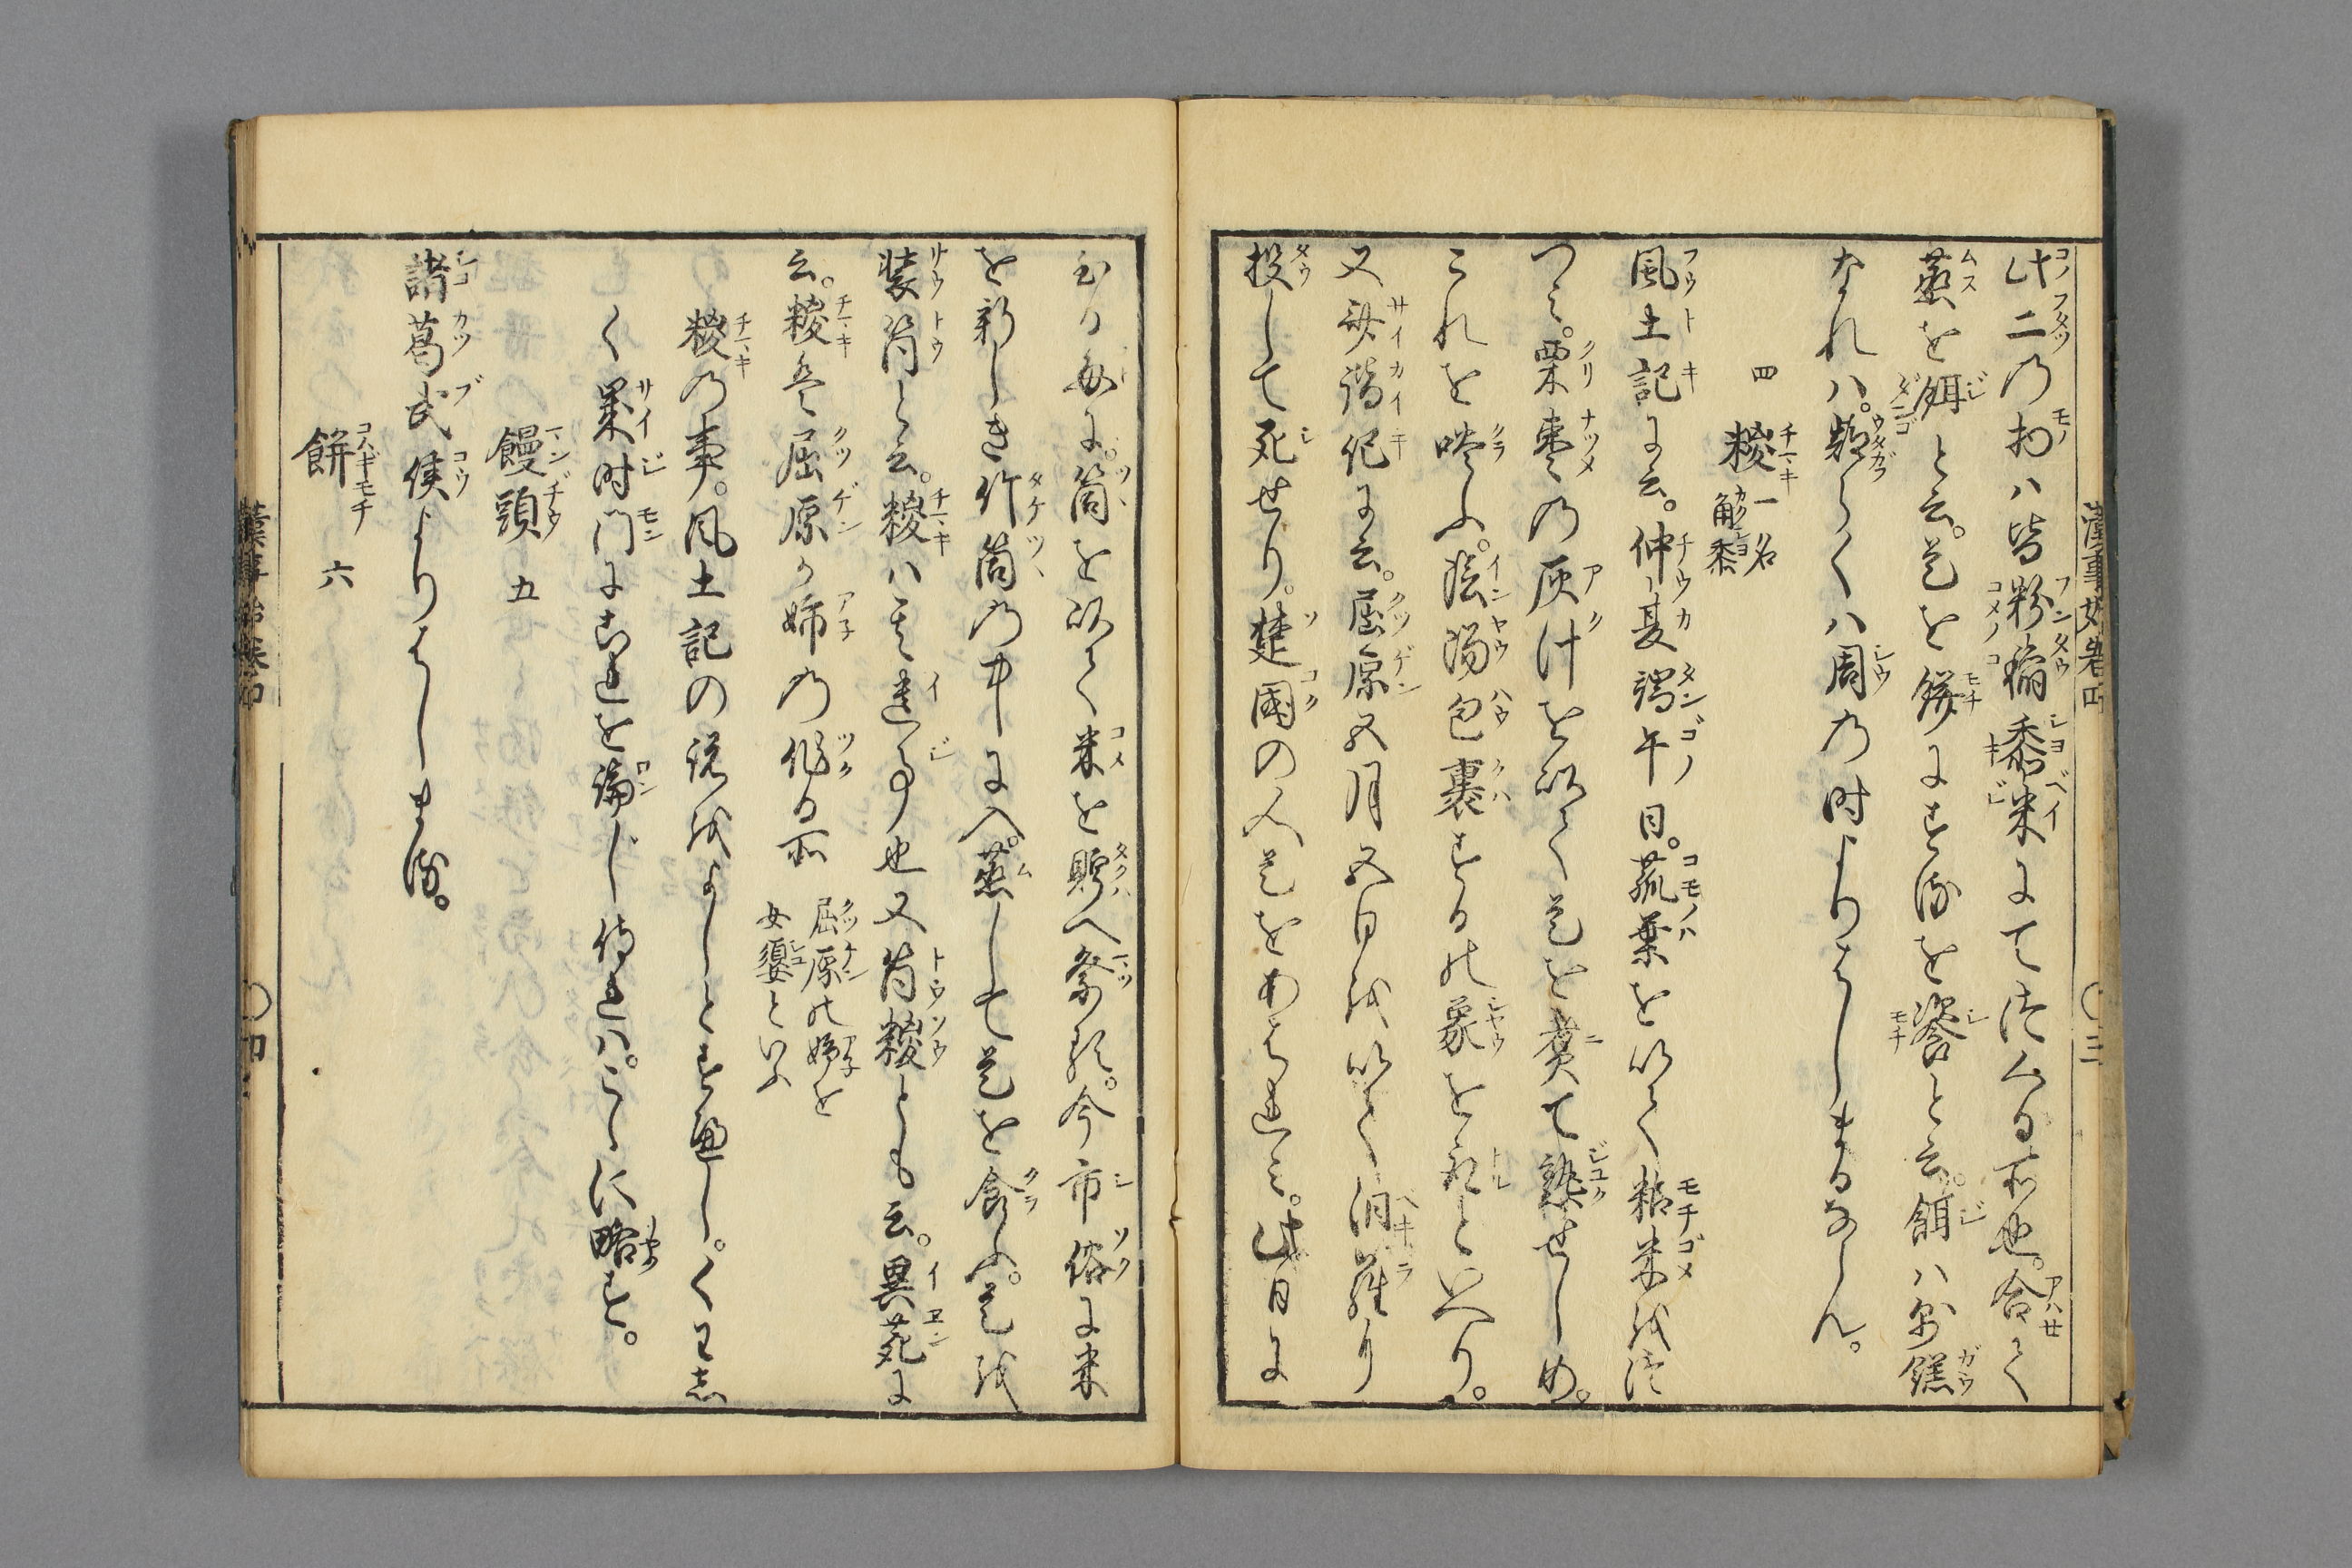 此二の物ハ皆粉稲黍米にてつくる所也。合て
蒸を餌と云。是を餅にするを餈と云。餌ハ
なれハ。疑らくハ周の時よりはしまるならん。
四 糉 一名角黍
風土記に云。仲夏端午日。菰葉を以て粘米をつ
つミ。栗棗の灰汁を以て是を煮て熟せしめ。
これを啖ふ。陰陽包裹するの象を取といへり。
又歳時記に云。屈原五月五日を以て汨羅に
投して死せり。楚國の人是をあはれミ。此日に
至る毎に。筒を以て米を貯へ祭る。今市俗に米
を新しき竹筒の中に入。蒸して是を食ふ。是を
装筒と云。糉ハ其遺事也又筒糉とも云。異苑に
云。糉ハ屈原か姉の作る所 屈原の姉を女嬃といふ
糉の事。風土記の説をよしとすへし。くわし
く歳時門にこれを論じ侍れハ。こゝに略す。
饅頭 五
諸葛武侯よりはしまる。
餅 六
漢事始巻四
〇三
漢事始巻四
〇四